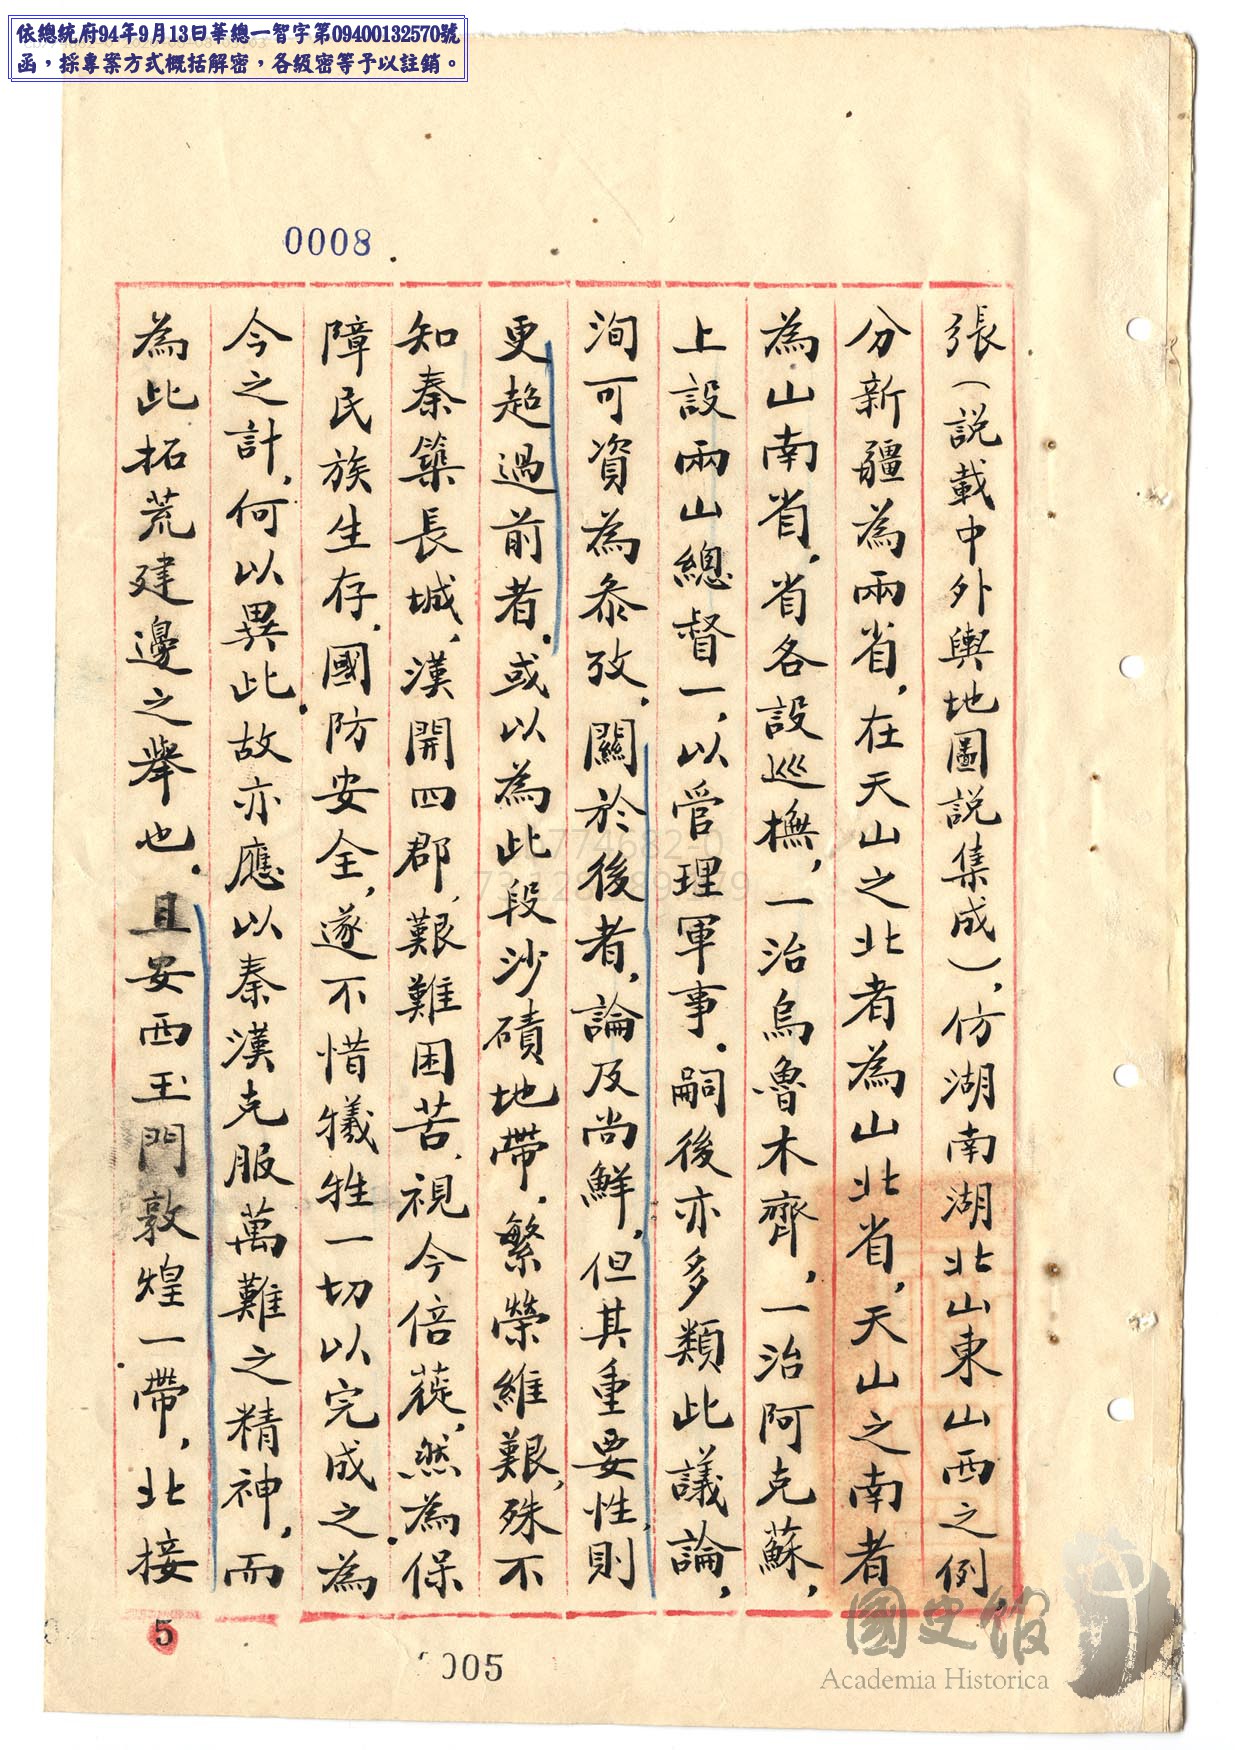 依總統府94年9月13日華總一智字第09400132570號
函，採專案方式概括解密，各級密等予以註銷。
0008
張（説載中外輿地圖説集成），仿湖南湖北山東山西之例，
分新疆為兩省，在天山之北者為山北省，天山之南者
為山南省．省各設巡撫，一治烏魯木齊，一治阿克蘇，
上設兩山總督一，以管理軍事．嗣後亦多類此議論，
洵可資為叅攷．關於後者，論及尚鮮，但其重要性，則
更超過前者．或以為此段沙磧地帶．繁榮維艱，殊不
知秦築長城，漢開四郡，艱難困苦，視今倍蓰，然為保
障民族生存，國防安全，遂不惜犧牲一切以完成之．為
今之計，何以異此．故亦應以秦漢克服萬難之精神，而
為此拓荒建邊之舉也．且安西玉門敦煌一帶，北接
5
005
國史館
Academia Historica